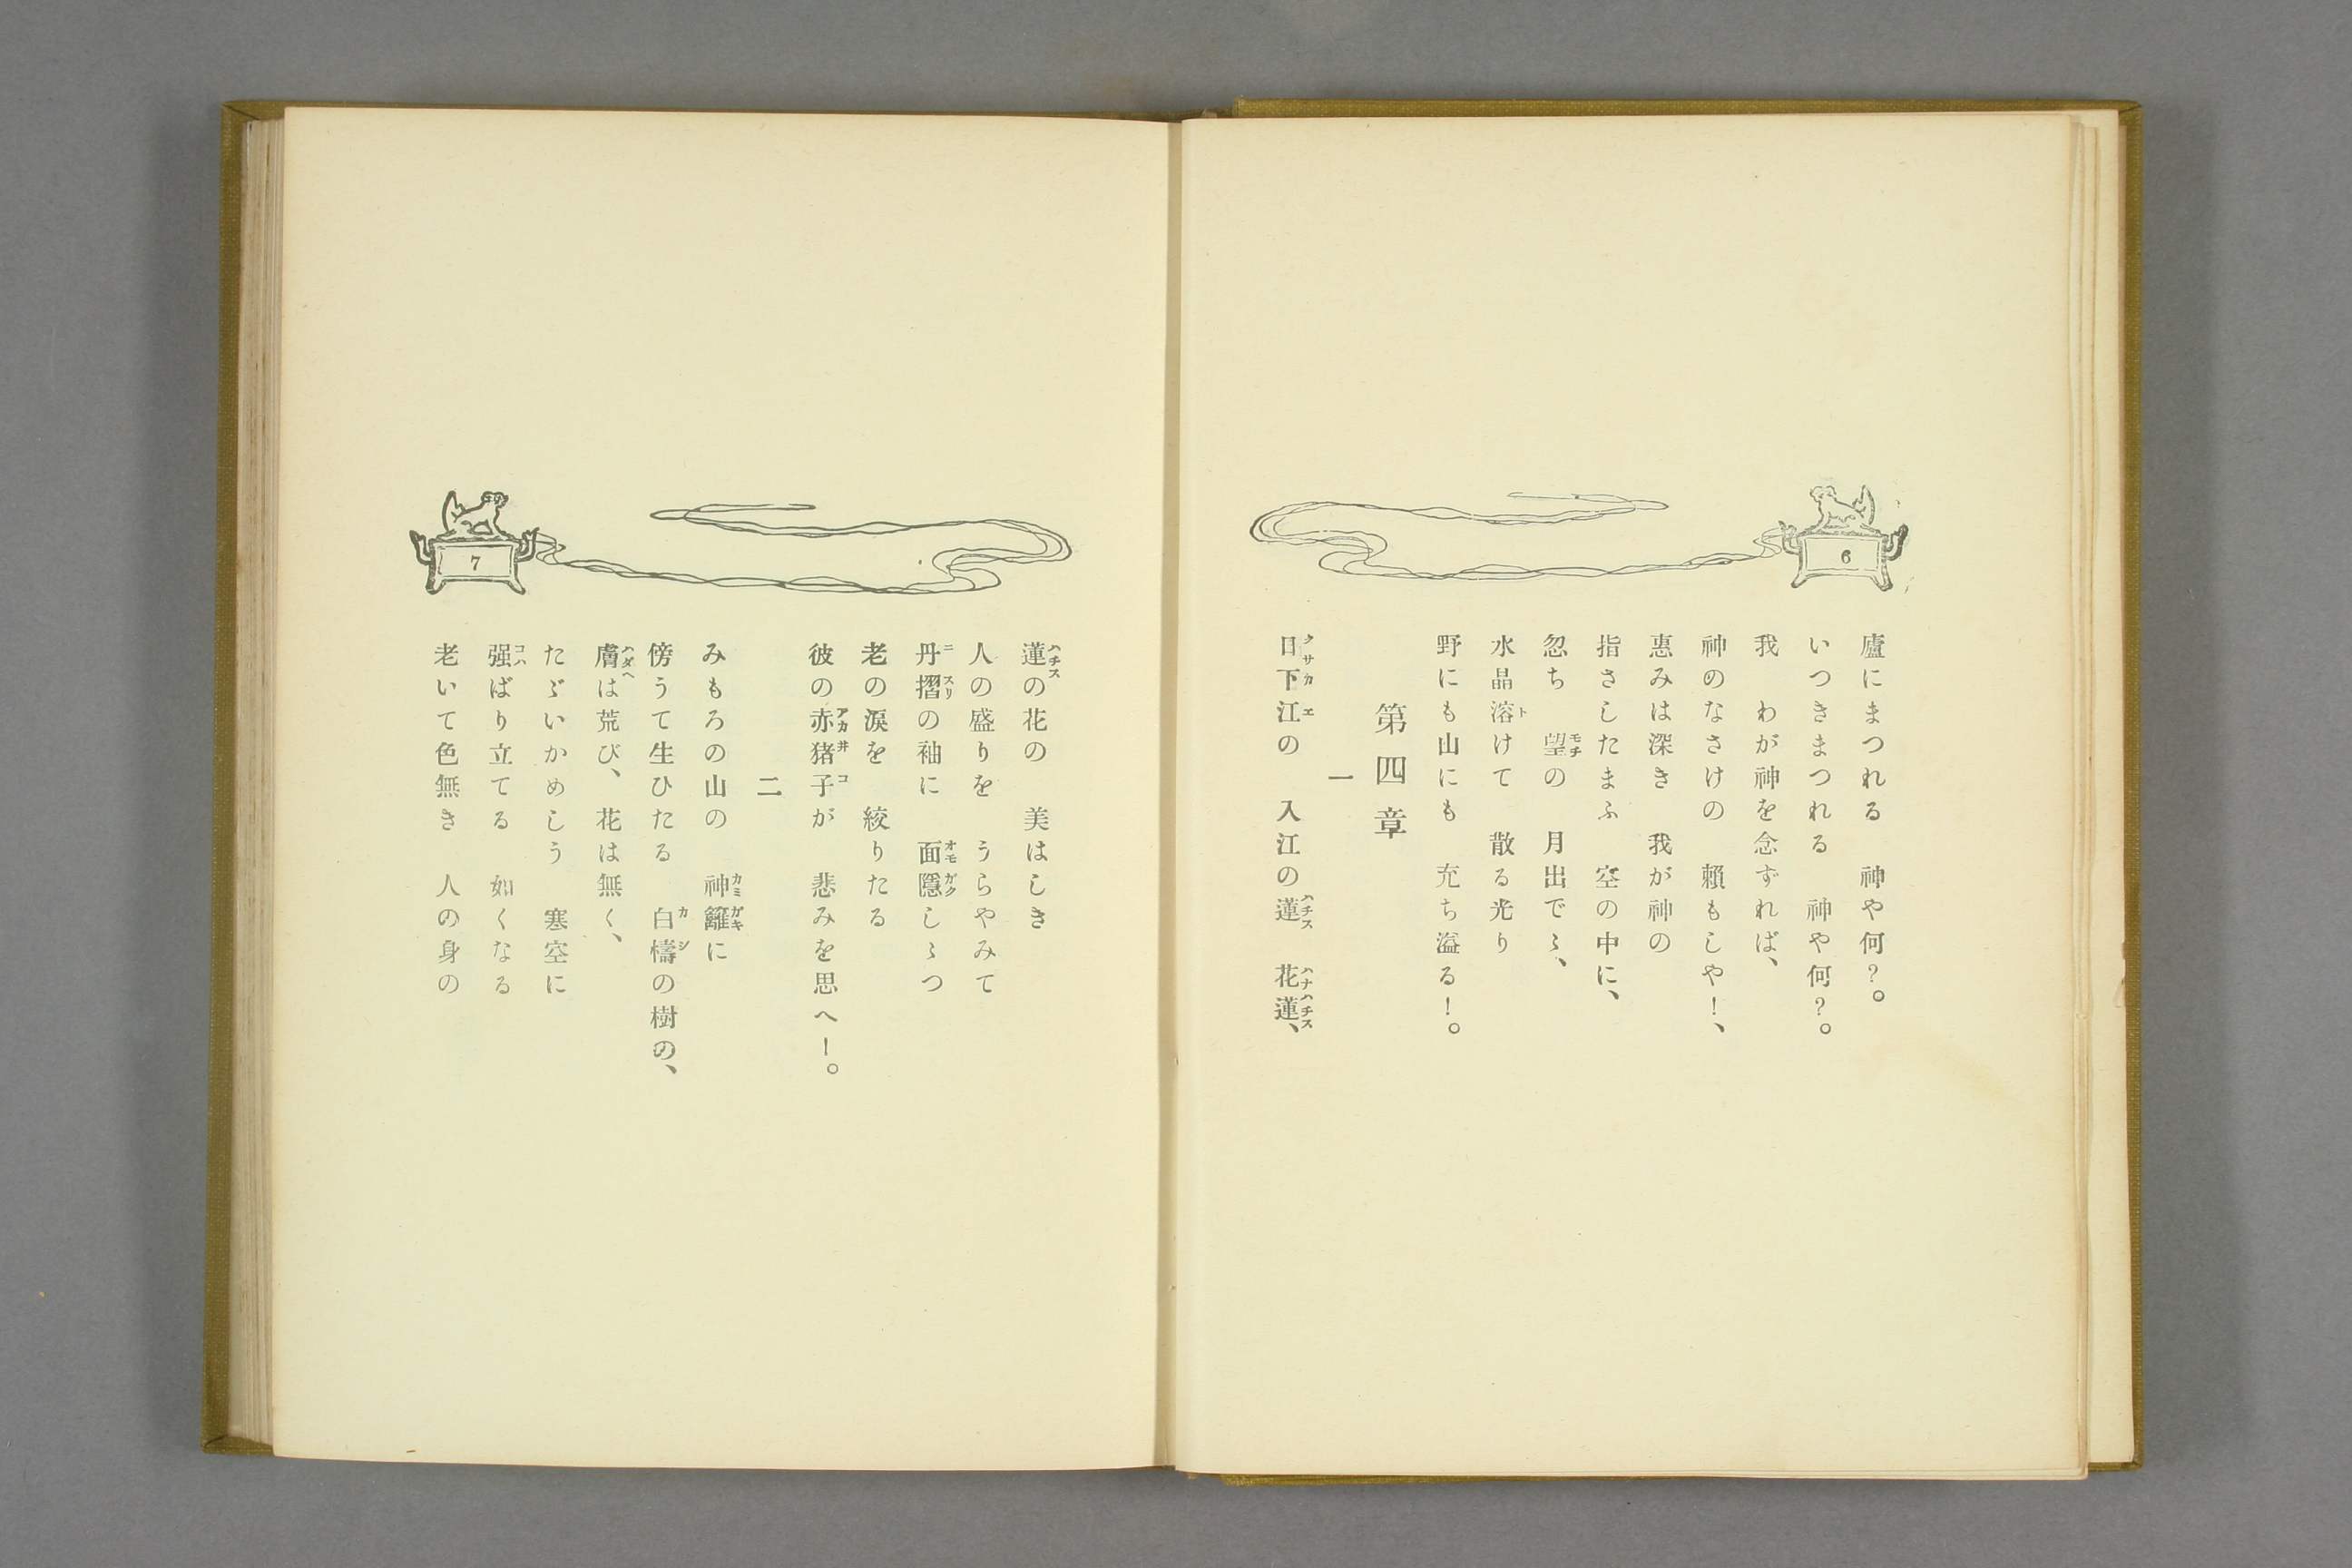 6
廬にまつれる　神や何？。
いつきまつれる　神や何？。
我　わが神を念ずれば、
神のなさけの　賴もしや！、
惠みは深き　我が神の
指さしたまふ　空の中に、
忽ち　望の　月出でゝ、
水晶溶けて　散る光り
野にも山にも　充ち溢る！。
第四章
一
日下江の　入江の蓮　花蓮、
7
蓮の花の　美はしき
人の盛りを　うらやみて
丹摺の袖に　面隱しゝつ
老の淚を　絞りたる
彼の赤猪子が　悲みを思へ！。
二
みもろの山の　神籬に
傍うて生ひたる　白檮の樹の、
膚は荒び、花は無く、
たゞいかめしう　寒空に
强ばり立てる　如くなる
老いて色無き　人の身の